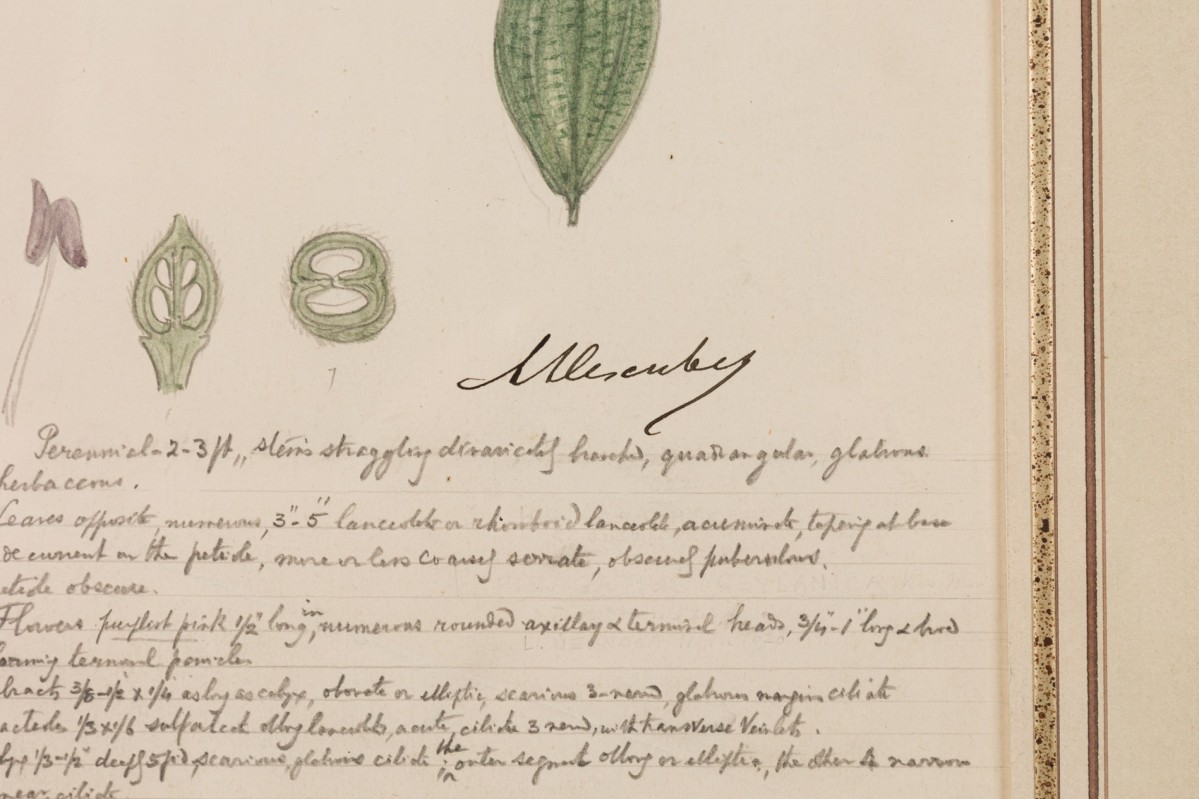 7
Perennial - 2-3 ft,, stems straggling divaricately branched, quadrangular, glabrous
herbaceous.
Leaves opposite, numerous, 3"-5" lanceolate or rhomboid lanceolate, acuminate, tapering at base
decurrent on the petiole, more or less coarsely serrate, obscurely puberulous.
petiole obscure.
Flowers purplish pink 1/2" long, in numerous rounded axillary & terminal heads, 3/4"-1" long & broad
forming terminal panicles
bracts 3/8-1/2 x 1/4 as long as calyx, obovate or elliptic, scarious 3-nerved, glabrous margin ciliate
1/3 x 1/6 oblong lanceolate, acute, ciliate 3 nerved, with transverse veinlets.
calyx 1/3-1/2" deeply 5 fid, scarious, glabrous ciliate; the outer segment oblong or elliptic, the other 4 narrow
linear, ciliate.